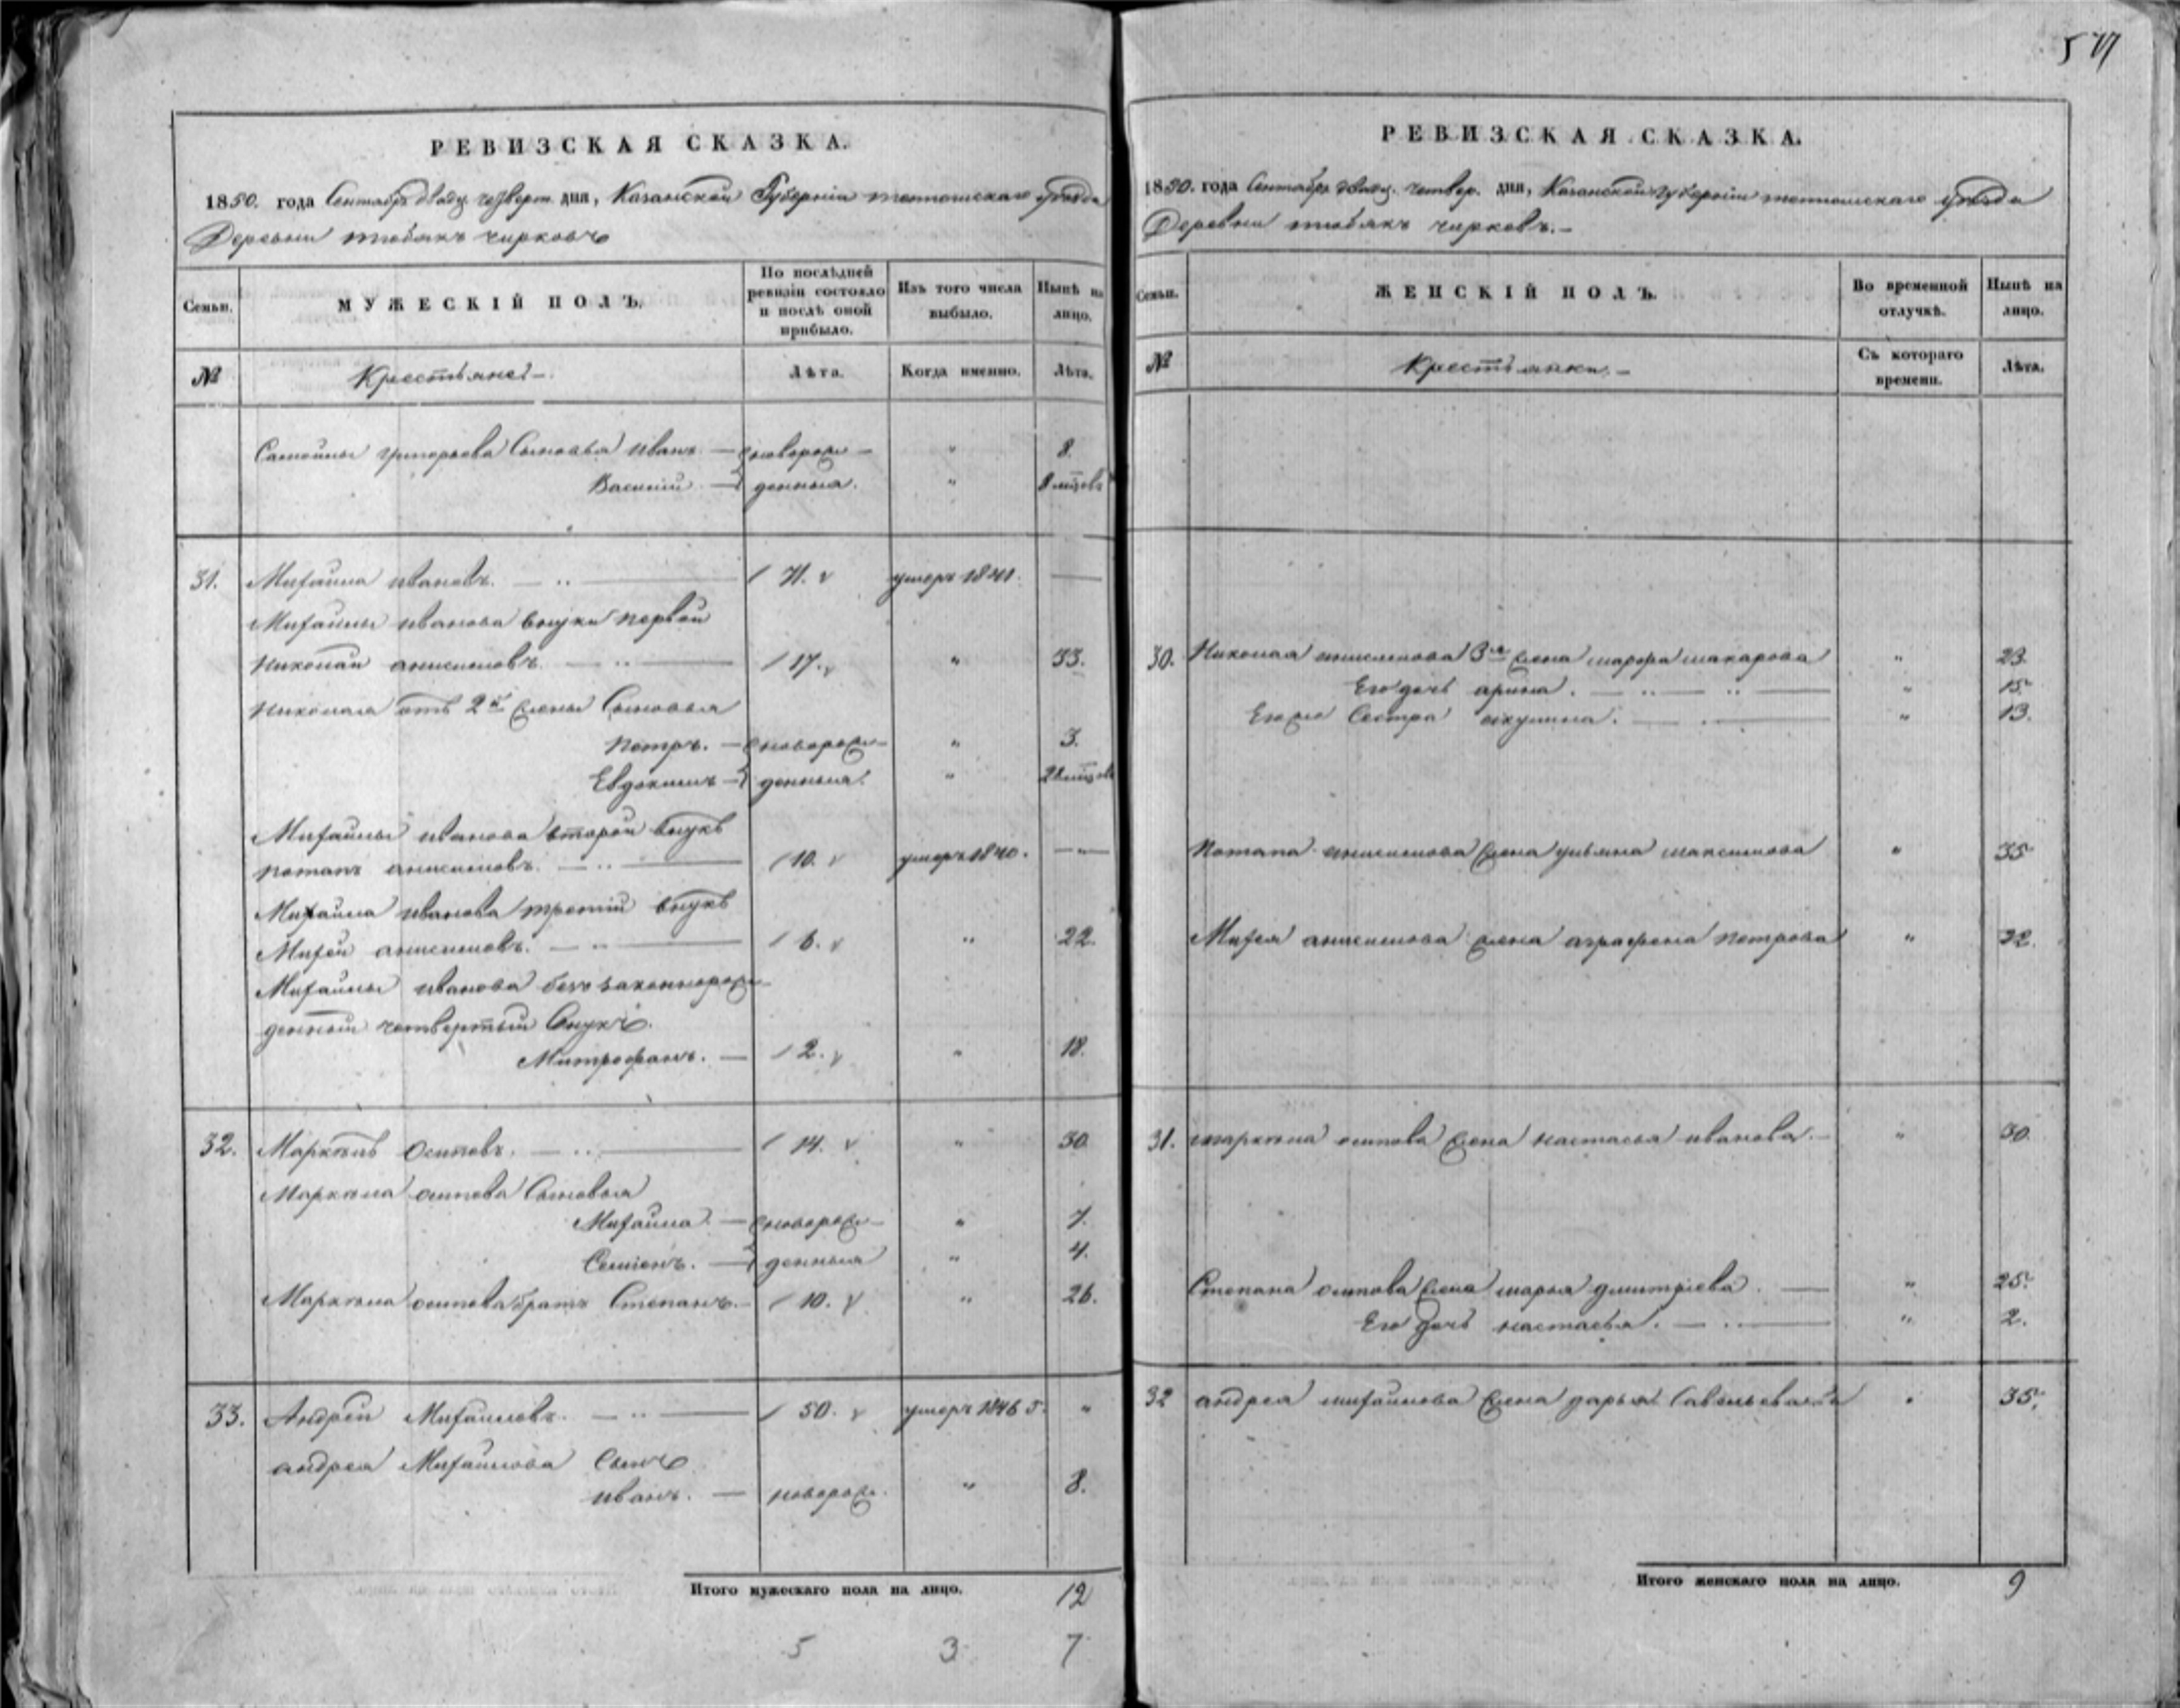 577
РЕВИЗСКАЯ СКАЗКА.
1850. года Сентября двадц. четверт. дня, Казанской Губерніи тетюшскаго уѣзда
Деревни тювякъ чирковъ
Семьи.
МУЖЕСКІЙ ПОЛЪ.
По послѣдней ревизіи состояло и послѣ оной прибыло.
Изъ того числа выбыло.
Нынѣ на лицо.
№
Крестьяне
Лѣта.
Когда именно.
Лѣта.
Самойлы григорьева Сыновья иванъ. — новорож- " 8.
Василий. — денныя. " 8 мцовъ
31. Михаила ивановъ. 71. умеръ 1841. —
Михайлы иванова внуки первой
николай анисимовъ. 17. " 33.
николая отъ 2й жены Сыновья
петръ. — новорож- " 3.
Евдокимъ — денныя. " мцовъ
Михайлы иванова второй внукъ
потапъ анисимовъ. 10. умеръ 1840. — " —
Михаила иванова третій внукъ
Михей анисимовъ. 6. " 22.
Михайлы иванова беззаконнорож-
денный четвертый внукъ.
Митрофанъ. — 2. " 18.
32. Маркелъ осиповъ. 14. " 30.
Маркела осипова Сыновья
Михаила. — новорож- " 7.
Семіонъ. — денныя " 4.
Маркела осипова братъ Степанъ. 10. " 26.
33. Андрей Михайловъ. 50. умеръ 1846 "
андрея Михайлова Сынъ
иванъ. — новорож. " 8.
Итого мужескаго пола на лицо. 12
5 3 7
РЕВИЗСКАЯ СКАЗКА.
1850. года Сентября двадц. четвер. дня, Казанской губерніи тетюшскаго уѣзда
Деревни тювякъ чирковъ. —
Семьи.
ЖЕНСКІЙ ПОЛЪ.
Во временной отлучкѣ.
Нынѣ на лицо.
№
Крестьянки. —
Съ котораго времени.
Лѣта.
30. Николая анисимова 3я жена марфа макарова " 23.
Его дочь арина. " 15.
Его же Сестра акулина. " 13.
потапа анисимова жена ульяна максимова " 35
Михея анисимова жена аграфена петрова " 22.
31. маркела осипова жена настасья иванова. " 30.
Степана осипова жена марья дмитріева. " 25.
Его дочь настасья. " 2.
32 андрея михайлова жена дарья Савельева " 35.
Итого женскаго пола на лицо. 9